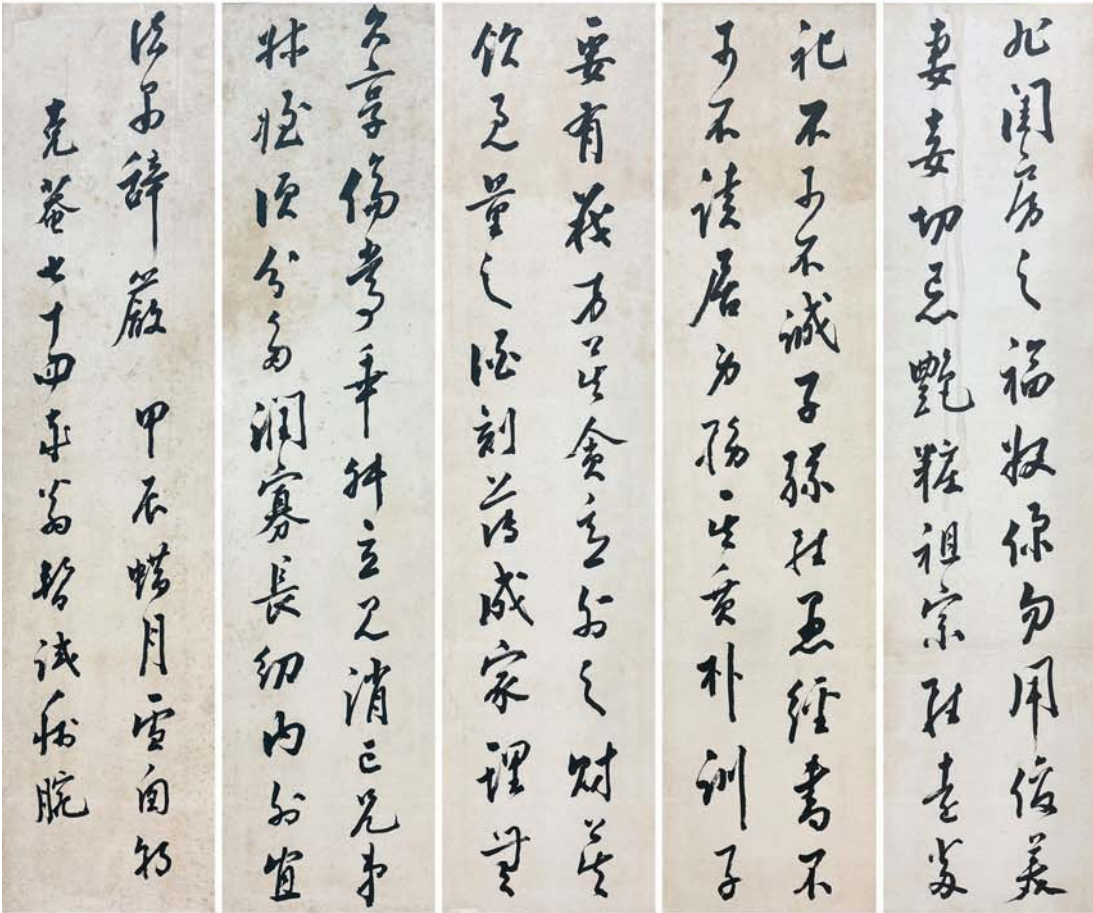 非閨房之福奴僕勿用俊美
妻妾切忌艷粧祖宗雖遠祭
祀不可不誠子孫雖愚經書不
可不讀居身務其質朴訓子
要有義方莫貪意外之財莫
飲過量之酒刻薄成家理無
久享倫常乖舛立見消亡兄弟
叔侄須分多潤寡長幼內外宜
法肅辭嚴 甲辰蜡月雪
菴七十四 翁 試 腕